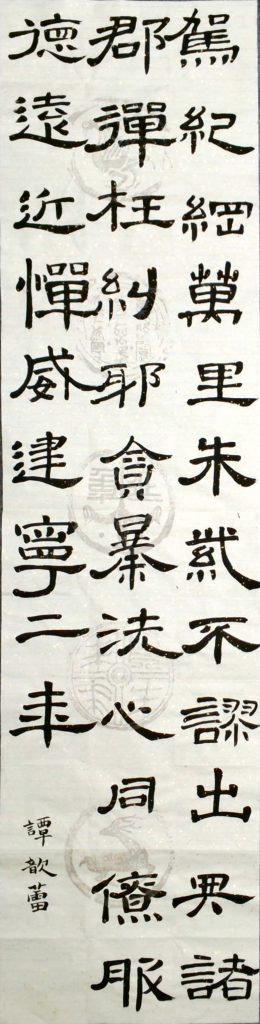 駕紀綱萬里朱紫不謬出典諸
郡彈枉糾耶貪暴洗心同僚服
德遠近憚威建寧二年
譚歆蕾